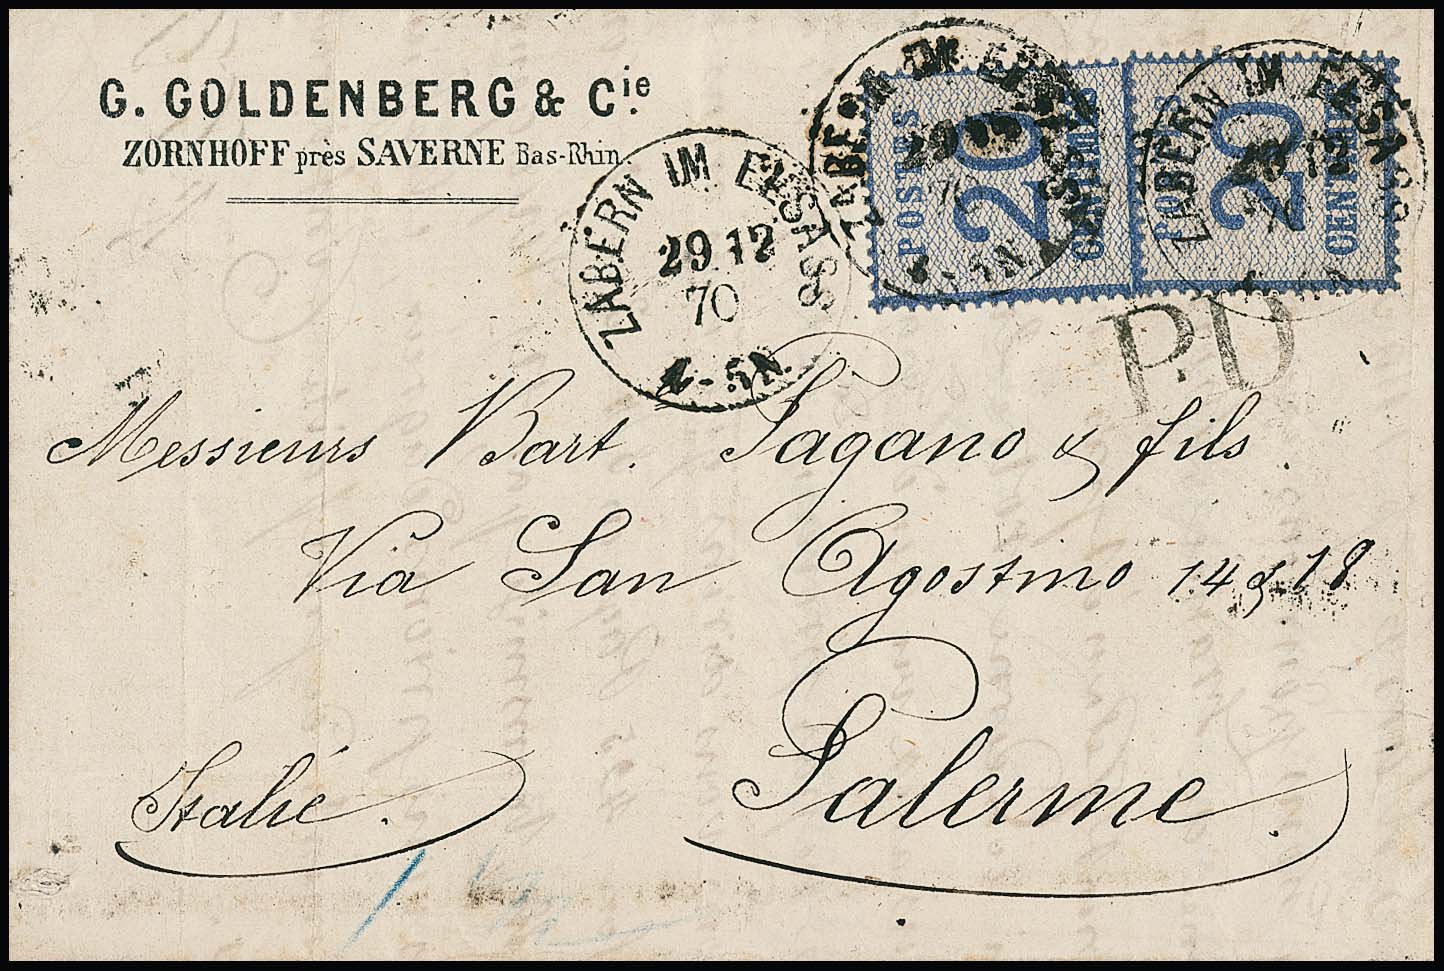 G. GOLDENBERG & Cie.
ZORNHOFF près SAVERNE Bas-Rhin.
ZABERN IM ELSASS
29 12
70
4-5N.
ZABERN IM ELSASS
29 12
4-5N.
POSTES
20
CENTIMES
ZABERN IM ELSASS
29 12
POSTES
20
CENTIMES
P.D
Messieurs Bart. Pagano & fils.
Via San Agostino 14 & 18
Palerme.
Italie.